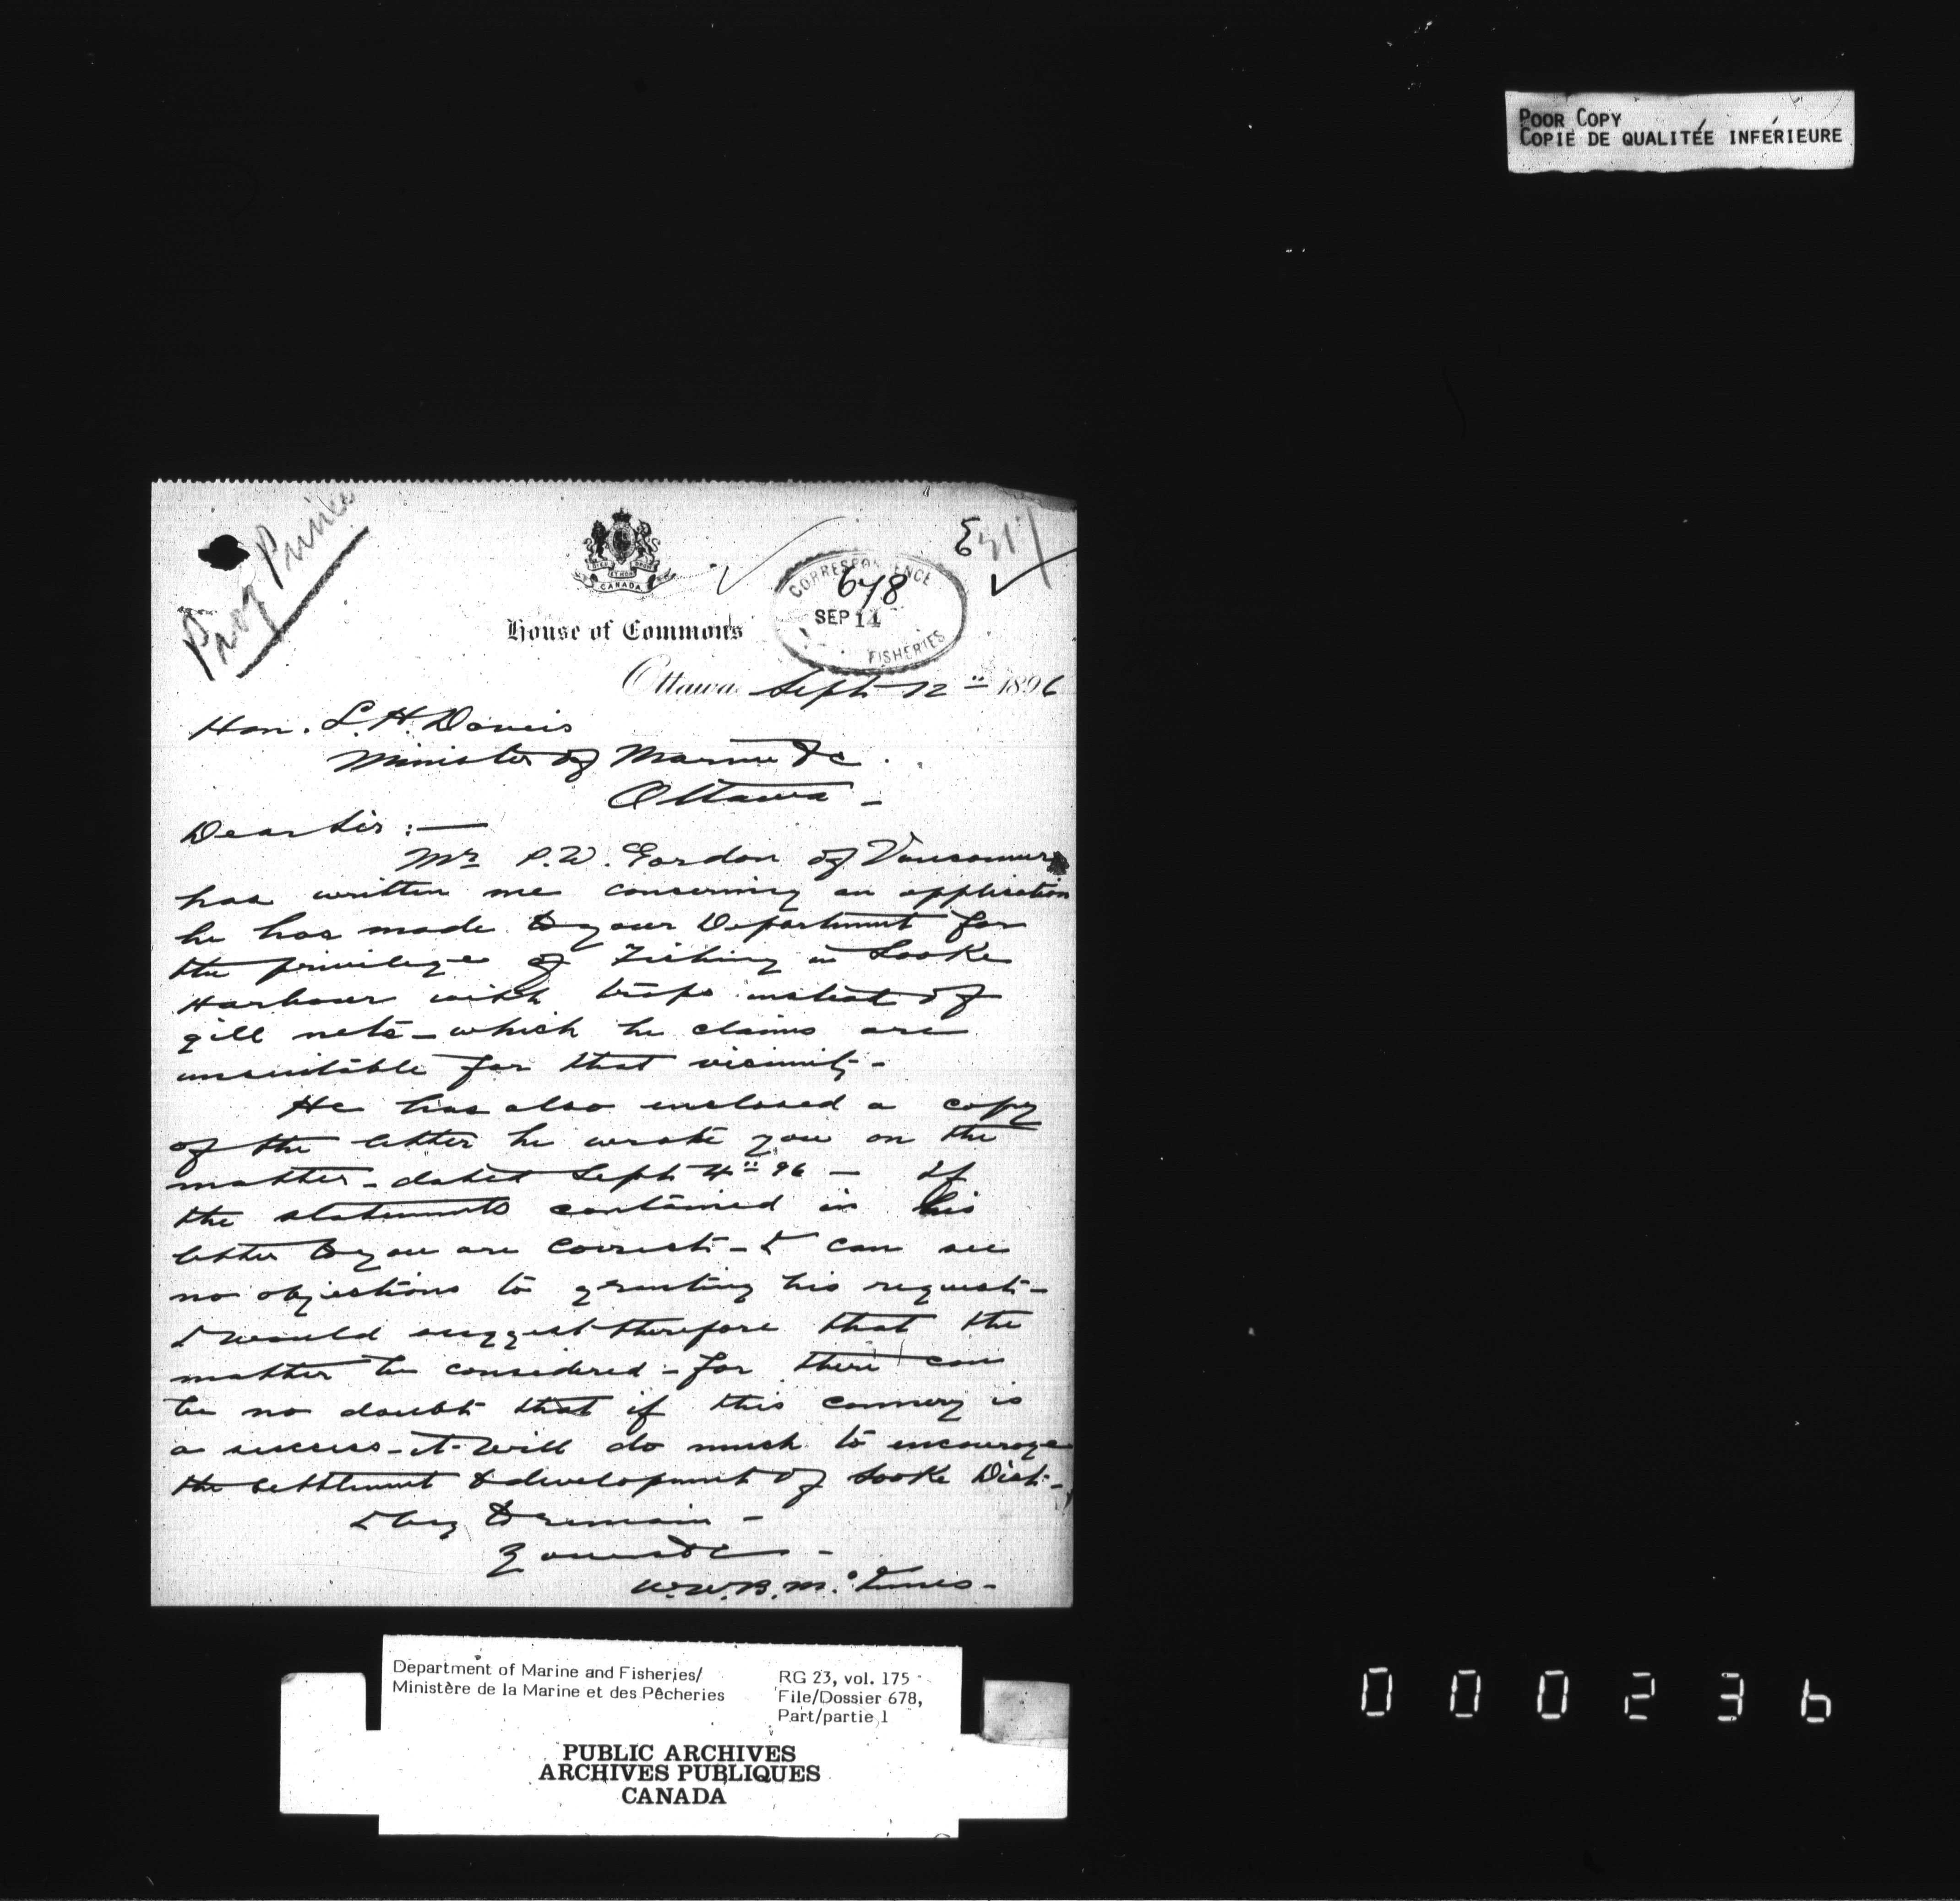 POOR COPY
COPIE DE QUALITÉE INFÉRIEURE
Prof Prince
CANADA
CORRESPONDENCE
678
SEP 14
FISHERIES
House of Commons
Ottawa Sept 12" 1896
Hon. L. H. Davies
Minister of Marine &c.
Ottawa -
Dear Sir :—
Mr P. W. Gordon of Vancouver
has written me concerning an application
he has made to your Department for
the privilege of Fishing in Sooke
Harbour with traps instead of
gill nets - which he claims are
unsuitable for that vicinity -
He has also enclosed a copy
of the letter he wrote you on the
matter - dated Sept 4" 96 — If
the statements contained in his
letter to you are correct - I can see
no objections to granting his request -
I would suggest therefore that the
matter be considered - for there can
be no doubt that if this cannery is
a success - it will do much to encourage
the settlement & development of Sooke Dist -
I beg to remain -
Yours &c -
W. W. B. McInnes -
Department of Marine and Fisheries/
Ministère de la Marine et des Pêcheries
RG 23, vol. 175
File/Dossier 678,
Part/partie 1
PUBLIC ARCHIVES
ARCHIVES PUBLIQUES
CANADA
000236